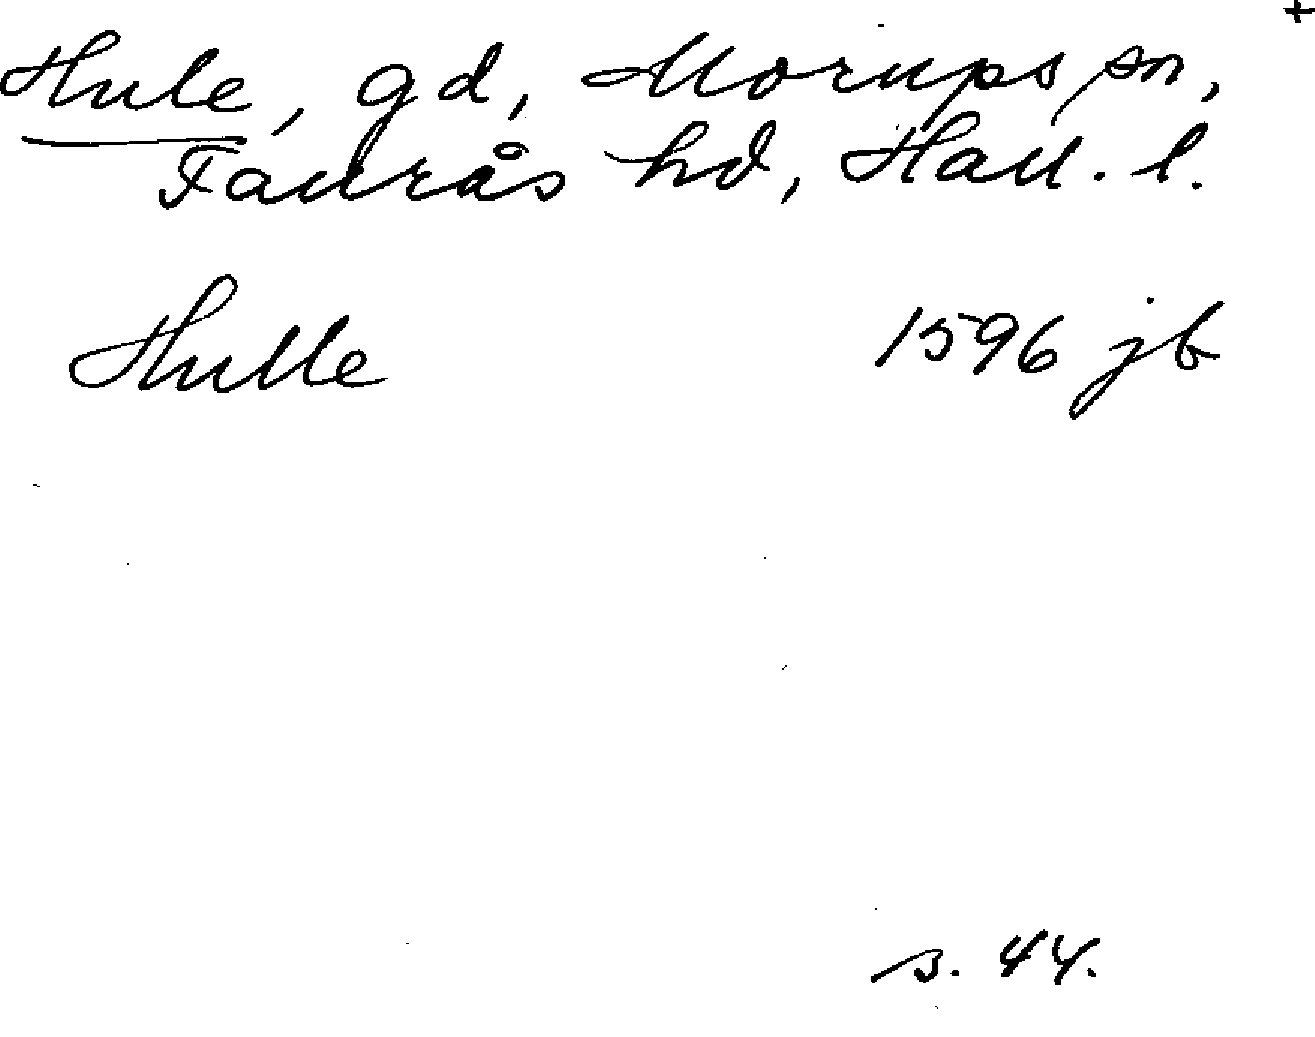 +
Hule, gd, Morups sn,
Faurås hd, Hall. l.
Hulle 1596 jb
s. 44.